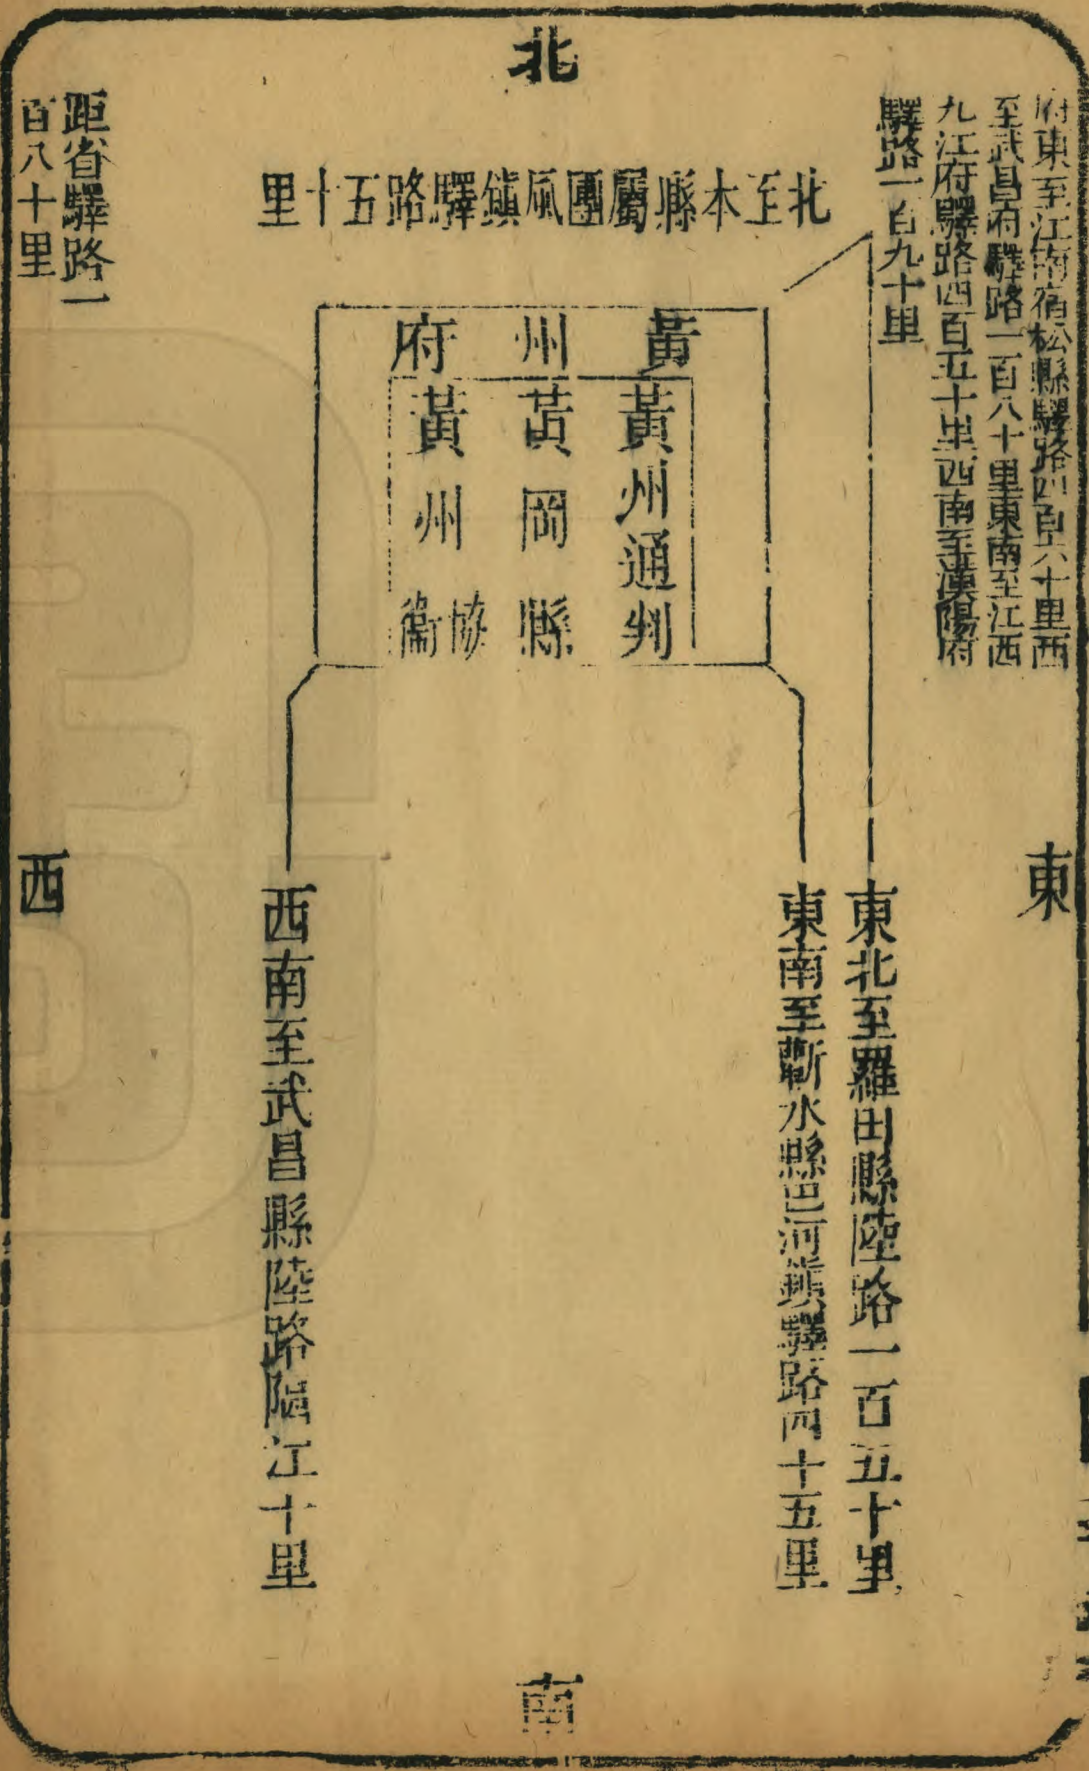 北
府東至江南宿松縣驛路四百六十里西
至武昌府驛路一百八十里東南至江西
九江府驛路四百五十里西南至漢陽府
驛路一百九十里
北至本縣屬團風鎮驛路五十里
距省驛路一
百八十里
黃州府
黃州通判
黃岡縣
黃州協
衞
東
東北至羅田縣陸路一百五十里
東南至蘄水縣巴河鎮驛路四十五里
西南至武昌縣陸路隔江十里
西
南